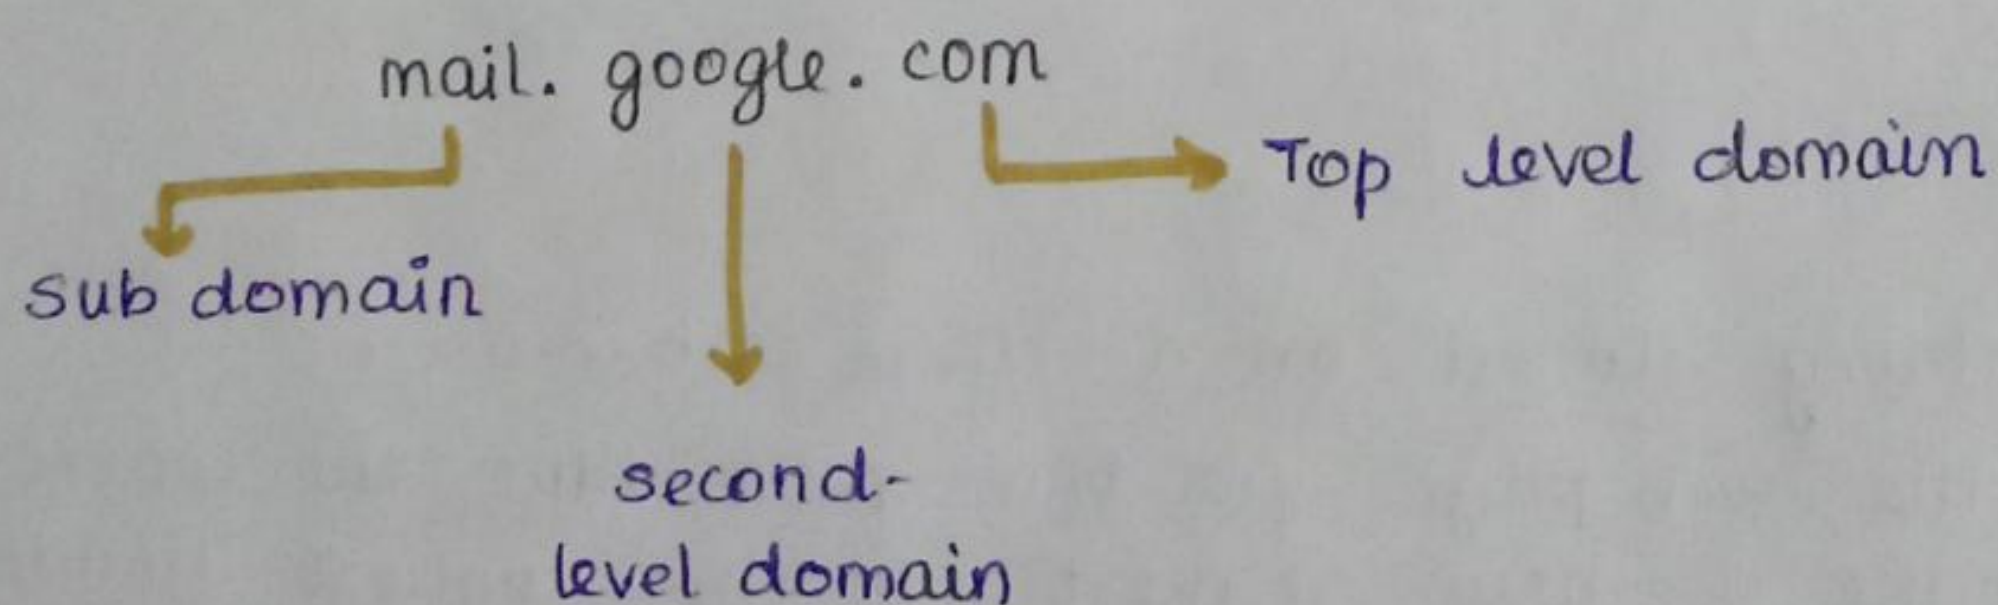 mail. google. com
Top level domain
sub domain
second-
level domain